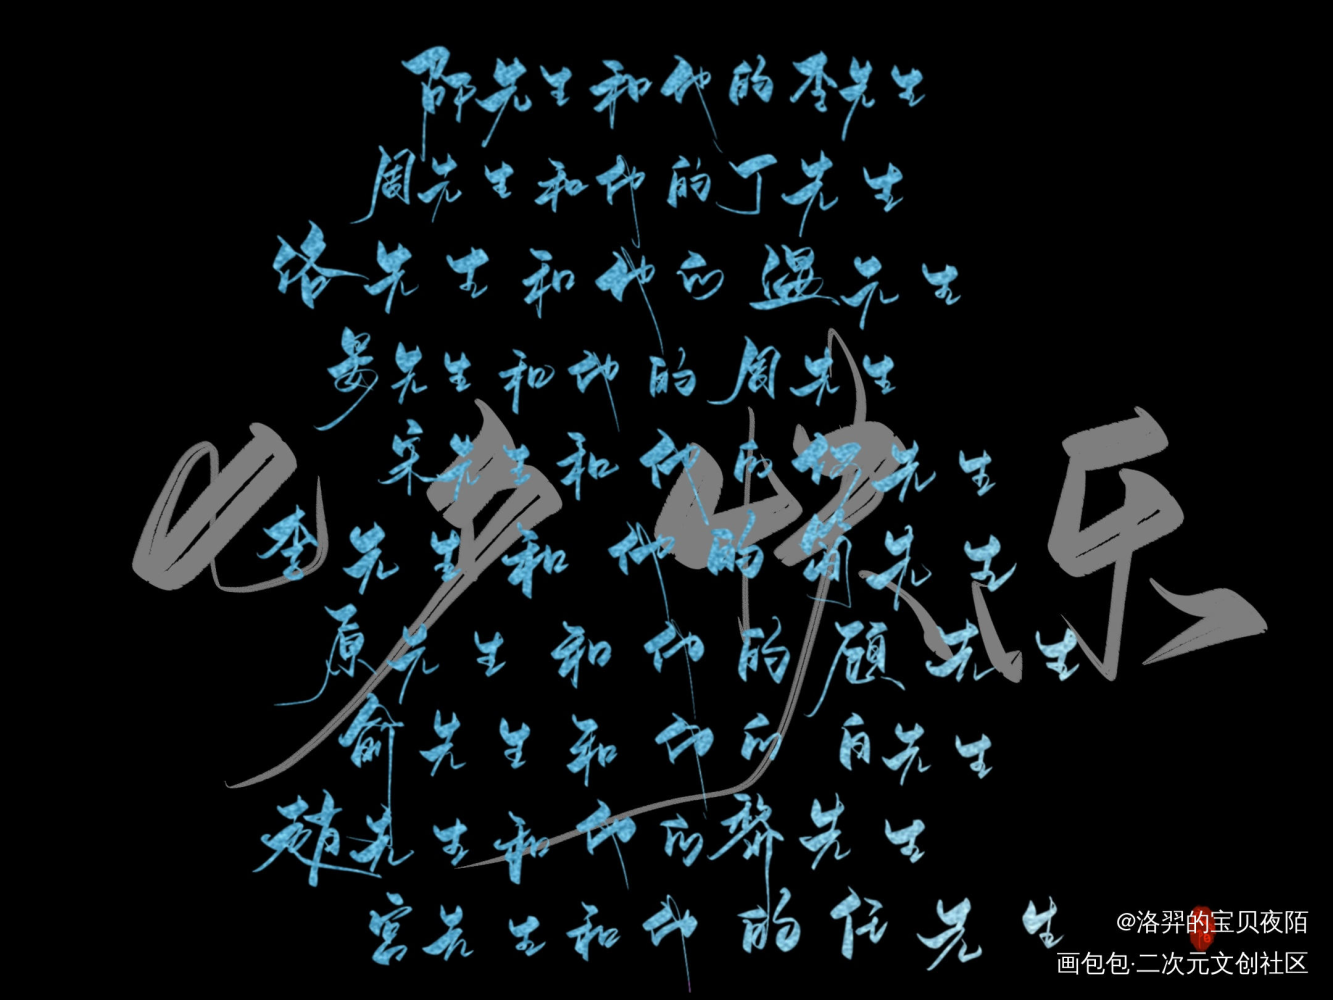 邵先生和他的李先生
周先生和他的丁先生
洛先生和他的温先生
晏先生和他的周先生
宋先生和他的何先生
李先生和他的肖先生
原先生和他的顾先生
俞先生和他的白先生
赵先生和他的黎先生
宫先生和他的任先生
七夕快乐
@洛羿的宝贝夜陌
画包包·二次元文创社区